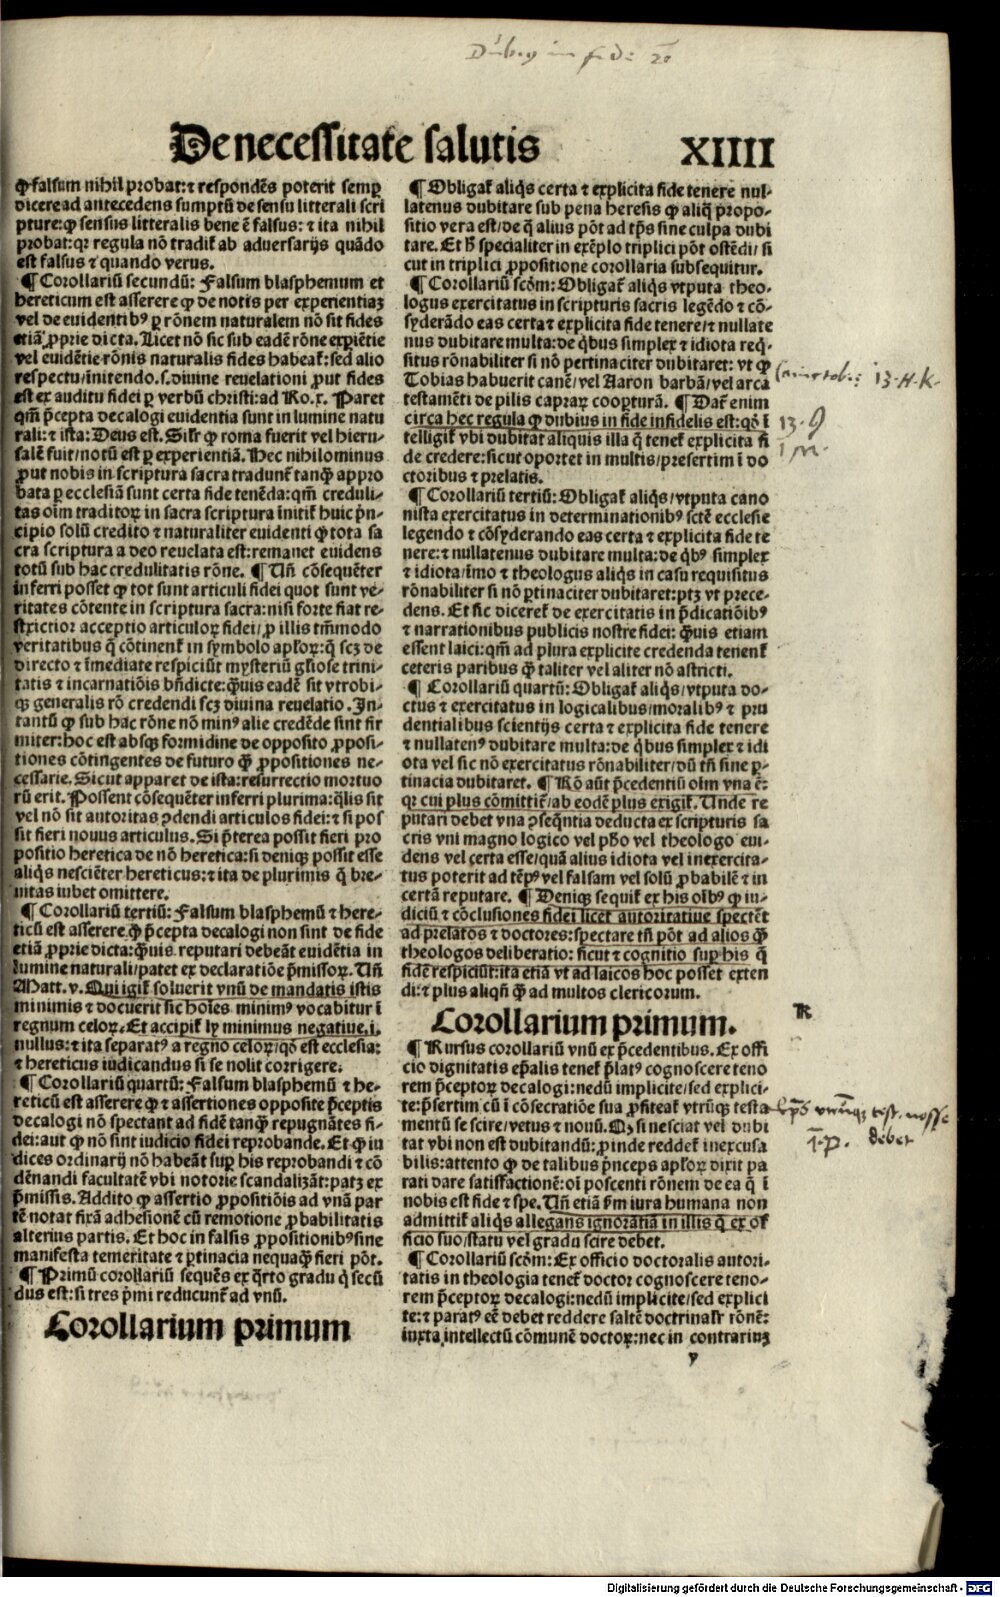 De necessitate salutis XIIII
ꝙ falsum nihil probat: ⁊ respondēs poterit semꝑ
dicere ad antecedens sumptū de sensu litterali scri
pture: ꝙ sensus litteralis bene ē falsus: ⁊ ita nihil
probat: qꝛ regula nō tradit᷑ ab aduersarijs quādo
est falsus ⁊ quando verus.
¶ Corollariū secundū: Falsum blasphemum et
hereticum est asserere ꝙ de notis per experientiaꝫ
vel de euidentibꝰ ꝑ rōnem naturalem nō sit fides
etiā ꝓprie dicta. Licet nō sic sub eadē rōne exꝑiētie
vel euidētie rōnis naturalis fides habeat᷑: sed alio
respectu/ īnitendo .s. diuine reuelationi ꝓut fides
est ex auditu fidei ꝑ verbū christi: ad Ro. x. Paret
qm̄ p̄cepta decalogi euidentia sunt in lumine natu
rali: ⁊ ista: Deus est. Silr̄ ꝙ roma fuerit vel hieru-
salē fuit/ notū est ꝑ experientiā. Hec nihilominus
ꝓut nobis in scriptura sacra tradunt᷑ tanꝙ̄ appro
bata ꝑ ecclesiā sunt certa fide tenēda: qm̄ creduli-
tas oīm traditoꝝ in sacra scriptura initit᷑ huic pn̄-
cipio solū credito ⁊ naturaliter euidenti ꝙ tota sa
cra scriptura a deo reuelata est: remanet euidens
totū sub hac credulitatis rōne. ¶ Un̄ cōsequēter
inferri posset ꝙ tot sunt articuli fidei quot sunt ve-
ritates cōtente in scriptura sacra: nisi forte fiat re-
strictior acceptio articuloꝝ fidei/ ꝓ illis tm̄modo
veritatibus q̄ cōtinent᷑ in symbolo apl̄oꝝ: q̄ scꝫ de
directo ⁊ īmediate respiciūt mysteriū gl̄iose trini-
tatis ⁊ incarnatiōis bn̄dicte: ꝙ̄uis eadē sit vtrobi-
qꝫ generalis rō credendi scꝫ diuina reuelatio. In-
tantū ꝙ sub hac rōne nō minꝰ alie credēde sint fir
miter: hoc est absqꝫ formidine de opposito ꝓposi-
tiones cōtingentes de futuro ꝙ̄ ꝓpositiones ne-
cessarie. Sicut apparet de ista: resurrectio mortuo
rū erit. Possent cōsequēter inferri plurima: q̄lis sit
vel nō sit autoritas ꝯdendi articulos fidei: ⁊ si pos
sit fieri nouus articulus. Si p̄terea possit fieri pro
positio heretica de nō heretica: si deniqꝫ possit esse
aliq̄s nesciēter hereticus: ⁊ ita de plurimis q̄ bre-
uitas iubet omittere.
¶ Corollariū tertiū: Falsum blasphemū ⁊ here-
ticū est asserere ꝙ p̄cepta decalogi non sint de fide
etiā ꝓprie dicta: ꝙ̄uis reputari debeāt euidētia in
lumine naturali/ patet ex declaratiōe p̄missoꝝ. Un̄
Matt. v. Qui igit᷑ soluerit vnū de mandatis istis
minimis ⁊ docuerit sic hoīes minimꝰ vocabitur ī
regnum celoꝝ. Et accipit᷑ ly minimus negatiue .i.
nullus: ⁊ ita separatꝰ a regno celoꝝ/ qd̄ est ecclesia:
⁊ hereticus iudicandus si se nolit corrigere.
¶ Corollariū quartū: Falsum blasphemū ⁊ he-
reticū est asserere ꝙ ⁊ assertiones opposite p̄ceptis
decalogi nō spectant ad fidē tanꝙ̄ repugnātes fi-
dei: aut ꝙ nō sint iudicio fidei reprobande. Et ꝙ iu
dices ordinarij nō habeāt suꝑ his reprobandi ⁊ cō
dēnandi facultatē vbi notorie scandalizāt: patꝫ ex
p̄missis. Addito ꝙ assertio ꝓpositiōis ad vnā par
tē notat fixā adhesionē cū remotione ꝓbabilitatis
alterius partis. Et hoc in falsis ꝓpositionibꝰ sine
manifesta temeritate ⁊ ꝑtinacia nequaꝙ̄ fieri pōt.
¶ Primū corollariū sequēs ex q̄rto gradu q̄ secū
dus est: si tres p̄mi reducunt᷑ ad vnū.
Corollarium primum
¶ Obligat᷑ aliq̄s certa ⁊ explicita fide tenere nul-
latenus dubitare sub pena heresis ꝙ aliq̄ propo-
sitio vera est/ de q̄ alius pōt ad tp̄s sine culpa dubi
tare. Et h̄ specialiter in exēplo triplici pōt ostēdi/ si
cut in triplici ꝓpositione corollaria subsequitur.
¶ Corollariū scd̄m: Obligat᷑ aliq̄s vtputa theo-
logus exercitatus in scripturis sacris legēdo ⁊ cō-
syderādo eas certa ⁊ explicita fide tenere/ ⁊ nullate
nus dubitare multa: de q̄bus simplex ⁊ idiota req̄-
situs rōnabiliter si nō pertinaciter dubitaret: vt ꝙ
Tobias habuerit canē/ vel Aaron barbā/ vel arca
testamēti de pilis capraꝝ cooꝑturā. ¶ Dat᷑ enim
circa hec regula ꝙ dubius in fide infidelis est: qd̄ ī
telligit᷑ vbi dubitat aliquis illa q̄ tenet᷑ explicita fi
de credere: sicut oportet in multis/ presertim ī do
ctoribus ⁊ prelatis.
¶ Corollariū tertiū: Obligat᷑ aliq̄s/ vtputa cano
nista exercitatus in determinationibꝰ sctē ecclesie
legendo ⁊ cōsyderando eas certa ⁊ explicita fide te
nere: ⁊ nullatenus dubitare multa: de q̄bꝰ simplex
⁊ idiota/ īmo ⁊ theologus aliq̄s in casu requisitus
rōnabiliter si nō ꝑtinaciter dubitaret: ptꝫ vt prece-
dens. Et sic diceret᷑ de exercitatis in p̄dicatiōibꝰ
⁊ narrationibus publicis nostre fidei: ꝙ̄uis etiam
essent laici: qm̄ ad plura explicite credenda tenent᷑
ceteris paribus ꝙ̄ taliter vel aliter nō astricti.
¶ Corollariū quartū: Obligat᷑ aliq̄s/ vtputa do-
ctus ⁊ exercitatus in logicalibus/ moralibꝰ ⁊ pru
dentialibus scientijs certa ⁊ explicita fide tenere
⁊ nullatenꝰ dubitare multa: de q̄bus simplex ⁊ idi
ota vel sic nō exercitatus rōnabiliter/ dū tn̄ sine ꝑ-
tinacia dubitaret. ¶ Rō aūt p̄cedentiū oīm vna ē:
qꝛ cui plus cōmittit᷑/ ab eodē plus exigit᷑. Unde re
putari debet vna ꝯseq̄ntia deducta ex scripturis sa
cris vni magno logico vel ph̄o vel theologo eui-
dens vel certa esse/ quā alius idiota vel inexercita-
tus poterit ad tēpꝰ vel falsam vel solū ꝓbabilē ⁊ in
certā reputare. ¶ Deniqꝫ seqit᷑ ex his oībꝰ ꝙ iu-
diciū ⁊ cōclusiones fidei licet autoritatiue spectēt
ad prelatos ⁊ doctores: spectare tn̄ pōt ad alios ꝙ̄
theologos deliberatio: sicut ⁊ cognitio suꝑ his q̄
fidē respiciūt: ita etiā vt ad laicos hoc posset exten
di: ⁊ plus aliqn̄ ꝙ̄ ad multos clericorum.
Corollarium primum. R
¶ Rursus corollariū vnū ex p̄cedentibus. Ex offi
cio dignitatis ep̄alis tenet᷑ p̄latꝰ cognoscere teno
rem p̄ceptoꝝ decalogi: nedū implicite/ sed explici-
te: p̄sertim cū ī cōsecratiōe sua ꝓfiteat᷑ vtrūqꝫ testa
mentū se scire/ vetus ⁊ nouū. Qꝫ si nesciat vel dubi
tat vbi non est dubitandū: ꝓinde reddet᷑ inexcusa
bilis: attento ꝙ de talibus p̄nceps apl̄oꝝ dixit pa
rati dare satisfactionē: oī poscenti rōnem de ea q̄ ī
nobis est fide ⁊ spe. Un̄ etiā ẜm iura humana non
admittit᷑ aliq̄s allegans ignorātiā in illis q̄ ex of
ficio suo/ statu vel gradu scire debet.
¶ Corollariū scd̄m: Ex officio doctoralis autori-
tatis in theologia tenet᷑ doctor cognoscere teno-
rem p̄ceptoꝝ decalogi: nedū implicite/ sed explici
te: ⁊ paratꝰ eē debet reddere saltē doctrinalr̄ rōnē:
iuxta intellectū cōmunē doctoꝝ: nec in contrariuꝫ
y
13. H. K.
13. 9
debet
Digitalisierung gefördert durch die Deutsche Forschungsgemeinschaft - DFG